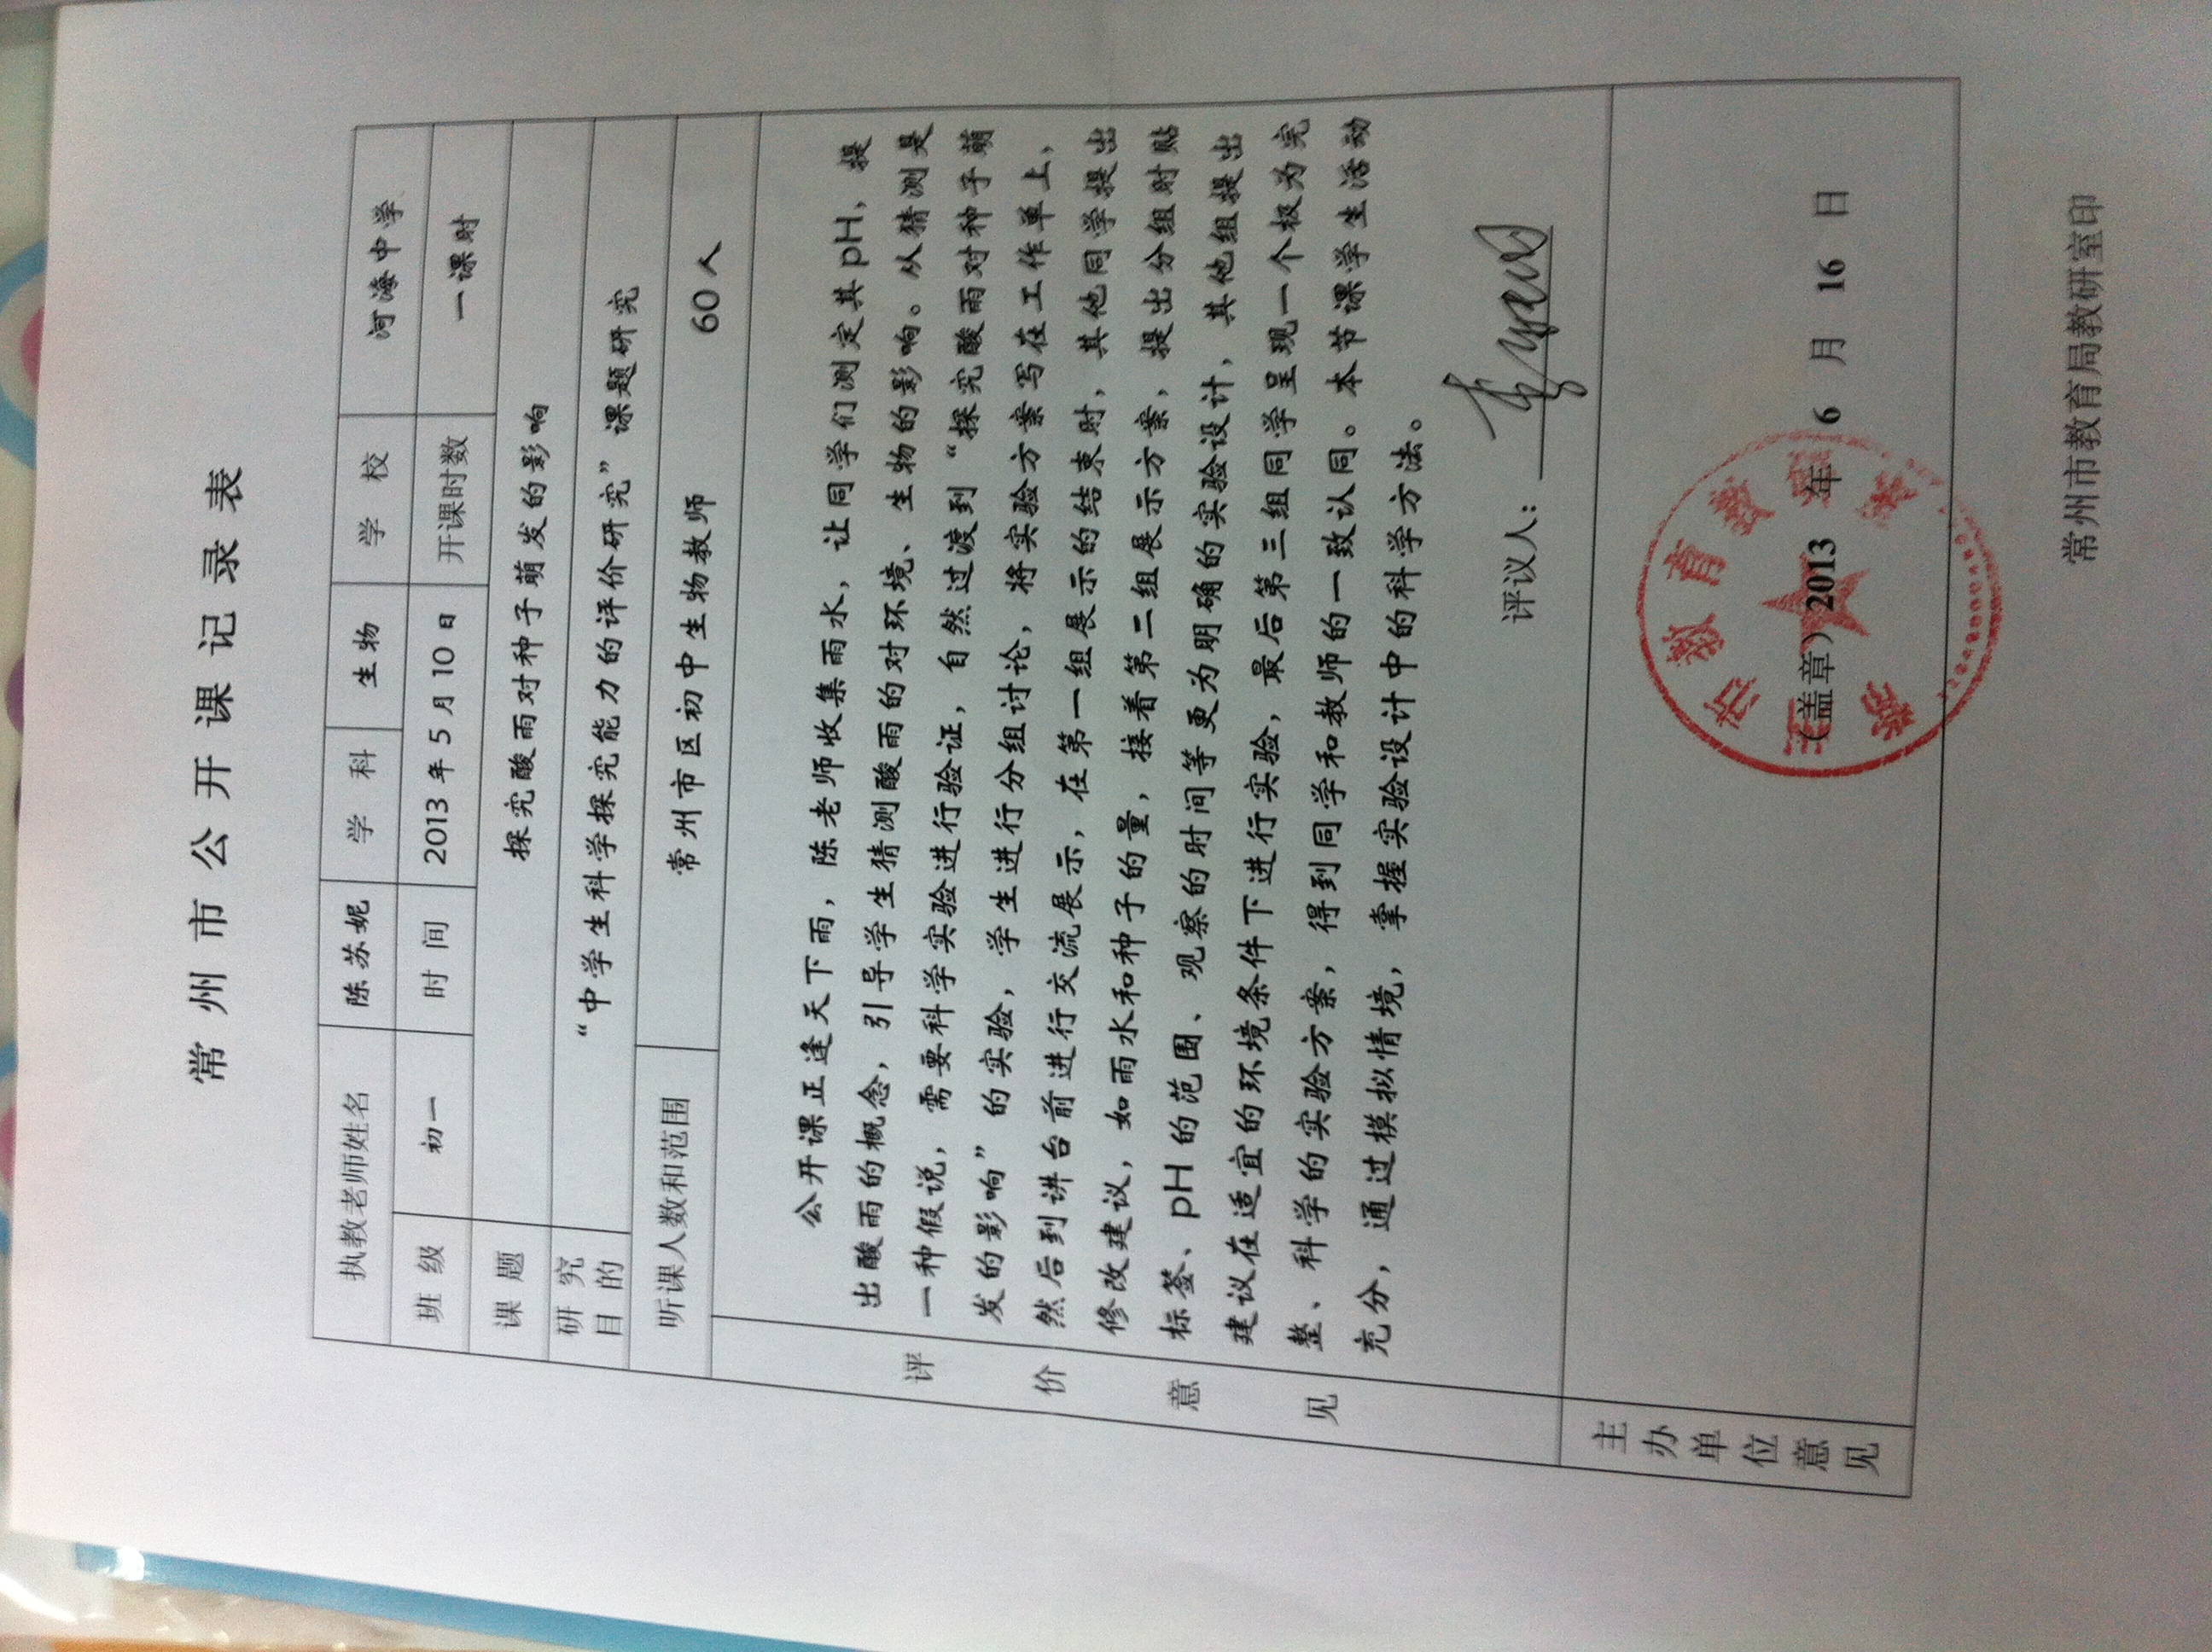 常州市公开课记录表
执教老师姓名 陈苏妮 学科 生物 学校 河海中学
班级 初一 时间 2013年5月10日 开课时数 一课时
课题 探究酸雨对种子萌发的影响
研究目的 “中学生科学探究能力的评价研究”课题研究
听课人数和范围 常州市区初中生物教师 60人
评价意见
公开课正逢天下雨，陈老师收集雨水，让同学们测定其pH，提
出酸雨的概念，引导学生猜测酸雨的对环境、生物的影响。从猜测是
一种假说，需要科学实验进行验证，自然过渡到“探究酸雨对种子萌
发的影响”的实验，学生进行分组讨论，将实验方案写在工作单上，
然后到讲台前进行交流展示，在第一组展示的结束时，其他同学提出
修改建议，如雨水和种子的量，接着第二组展示方案，提出分组时贴
标签、pH的范围、观察的时间等更为明确的实验设计，其他组提出
建议在适宜的环境条件下进行实验，最后第三组同学呈现一个极为完
整、科学的实验方案，得到同学和教师的一致认同。本节课学生活动
充分，通过模拟情境，掌握实验设计中的科学方法。
评议人：
主办单位意见
（盖章）2013 年 6 月 16 日
常州市教育局教研室印